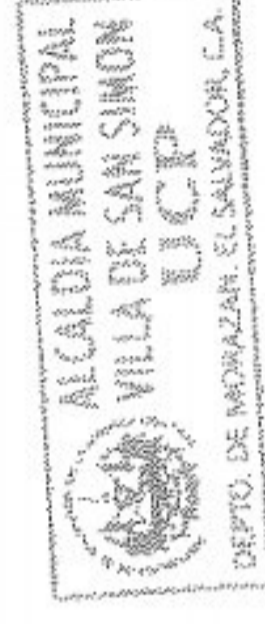 ALCALDIA MUNICIPAL
VILLA DE SAN SIMON
UCP
DEPTO. DE MORAZAN. EL SALVADOR, C.A.